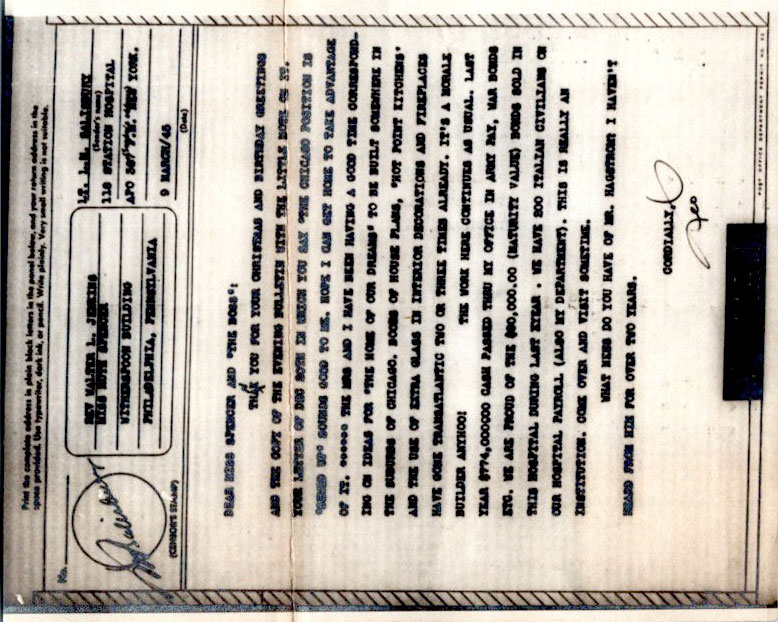 Print the complete address in plain black letters in the panel below, and your return address in the
space provided. Use typewriter, dark ink, or pencil. Write plainly. Very small writing is not suitable.
No.
(CENSOR'S STAMP)
REV WALTER L. JENKINS
MISS RUTH SPENCER
WITHERSPOON BUILDING
PHILADELPHIA, PENNSYLVANIA
LT. L.R. SALISBURY
(Sender's name)
118 STATION HOSPITAL
(Sender's address)
APO 367 P.M. NEW YORK.
9 MARCH/45
(Date)
DEAR MISS SPENCER AND "THE BOSS":
THANK YOU FOR YOUR CHRISTMAS AND BIRTHDAY GREETINGS
AND THE COPY OF THE EVENING BULLETIN WITH THE LITTLE NOTE ON IT.
YOUR LETTER OF DEC 20TH IN WHICH YOU SAY "THE CHICAGO POSITION IS
OPENED UP" SOUNDS GOOD TO ME. HOPE I CAN GET HOME TO TAKE ADVANTAGE
OF IT. ****** THE MRS AND I HAVE BEEN HAVING A GOOD TIME CORRESPOND-
ING ON IDEAS FOR "THE HOME OF OUR DREAMS" TO BE BUILT SOMEWHERE IN
THE SUBURBS OF CHICAGO. BOOKS OF HOUSE PLANS, "HOT POINT KITCHENS"
AND THE USE OF EXTRA GLASS IN INTERIOR DECORATIONS AND FIREPLACES
HAVE GONE TRANSATLANTIC TWO OR THREE TIMES ALREADY. IT'S A MORALE
BUILDER ANYHOO!
THE WORK HERE CONTINUES AS USUAL. LAST
YEAR $774,000000 CASH PASSED THRU MY OFFICE IN ARMY PAY, WAR BONDS
ETC. WE ARE PROUD OF THE $20,000.00 (MATURITY VALUE) BONDS SOLD IN
THIS HOSPITAL DURING LAST XYEAR . WE HAVE 200 ITALIAN CIVILIANS ON
OUR HOSPITAL PAYROLL (ALSO MY DEPARTMENT). THIS IS REALLY AN
INSTITUTION. COME OVER AND VISIT SOMETIME.
WHAT NEWS DO YOU HAVE OF MR. HAGSTROM? I HAVEN'T
HEARD FROM HIM FOR OVER TWO YEARS.
CORDIALLY,
Leo
POST OFFICE DEPARTMENT PERMIT NO.